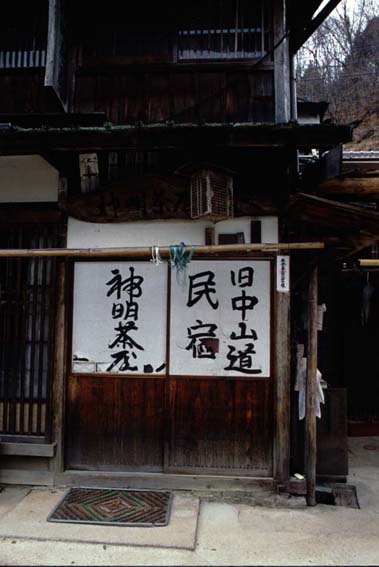 旧中山道
民宿
神明茶屋